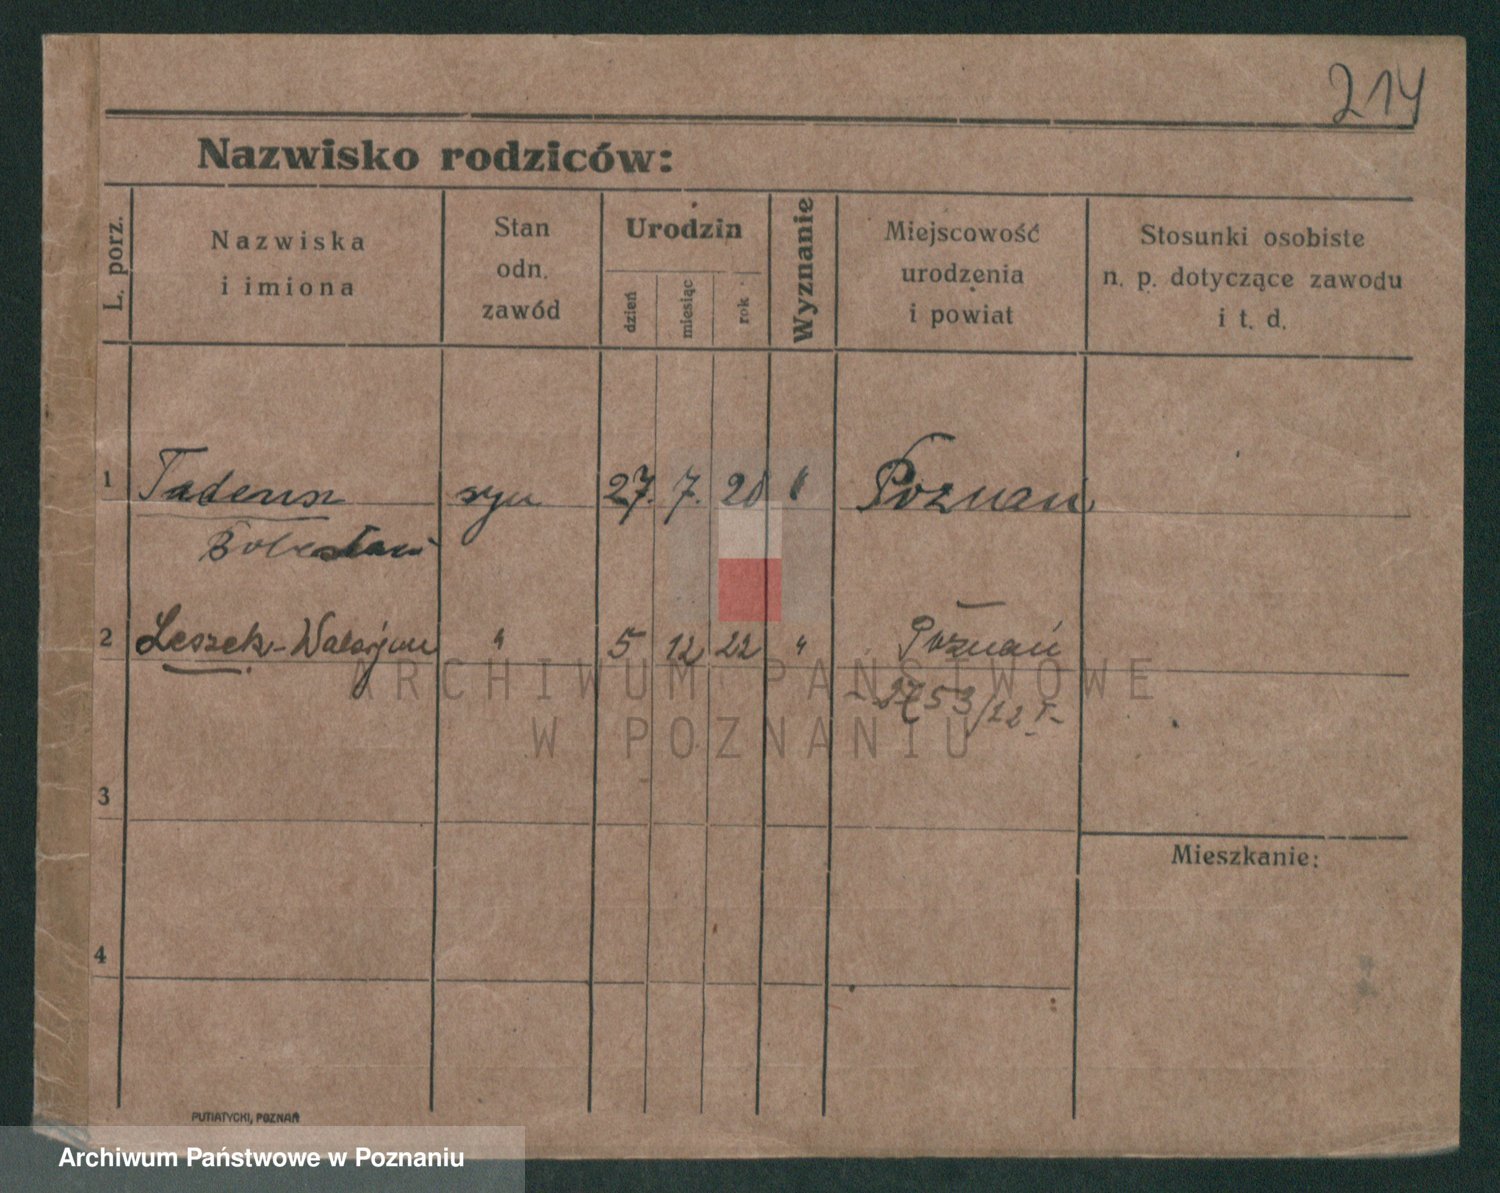 214
Nazwisko rodziców:
L. porz.
Nazwiska
i imiona
Stan
odn.
zawód
Urodzin
dzień
miesiąc
rok
Wyznanie
Miejscowość
urodzenia
i powiat
Stosunki osobiste
n. p. dotyczące zawodu
i t. d.
1 Tadeusz syn 27. 7. 20 " Poznań
Bolesław
2 Leszek-Walerjan " 5 12 22 " Poznań
2753/22
3
4
Mieszkanie:
PUTIATYCKI, POZNAŃ
ARCHIWUM PAŃSTWOWE
W POZNANIU
Archiwum Państwowe w Poznaniu